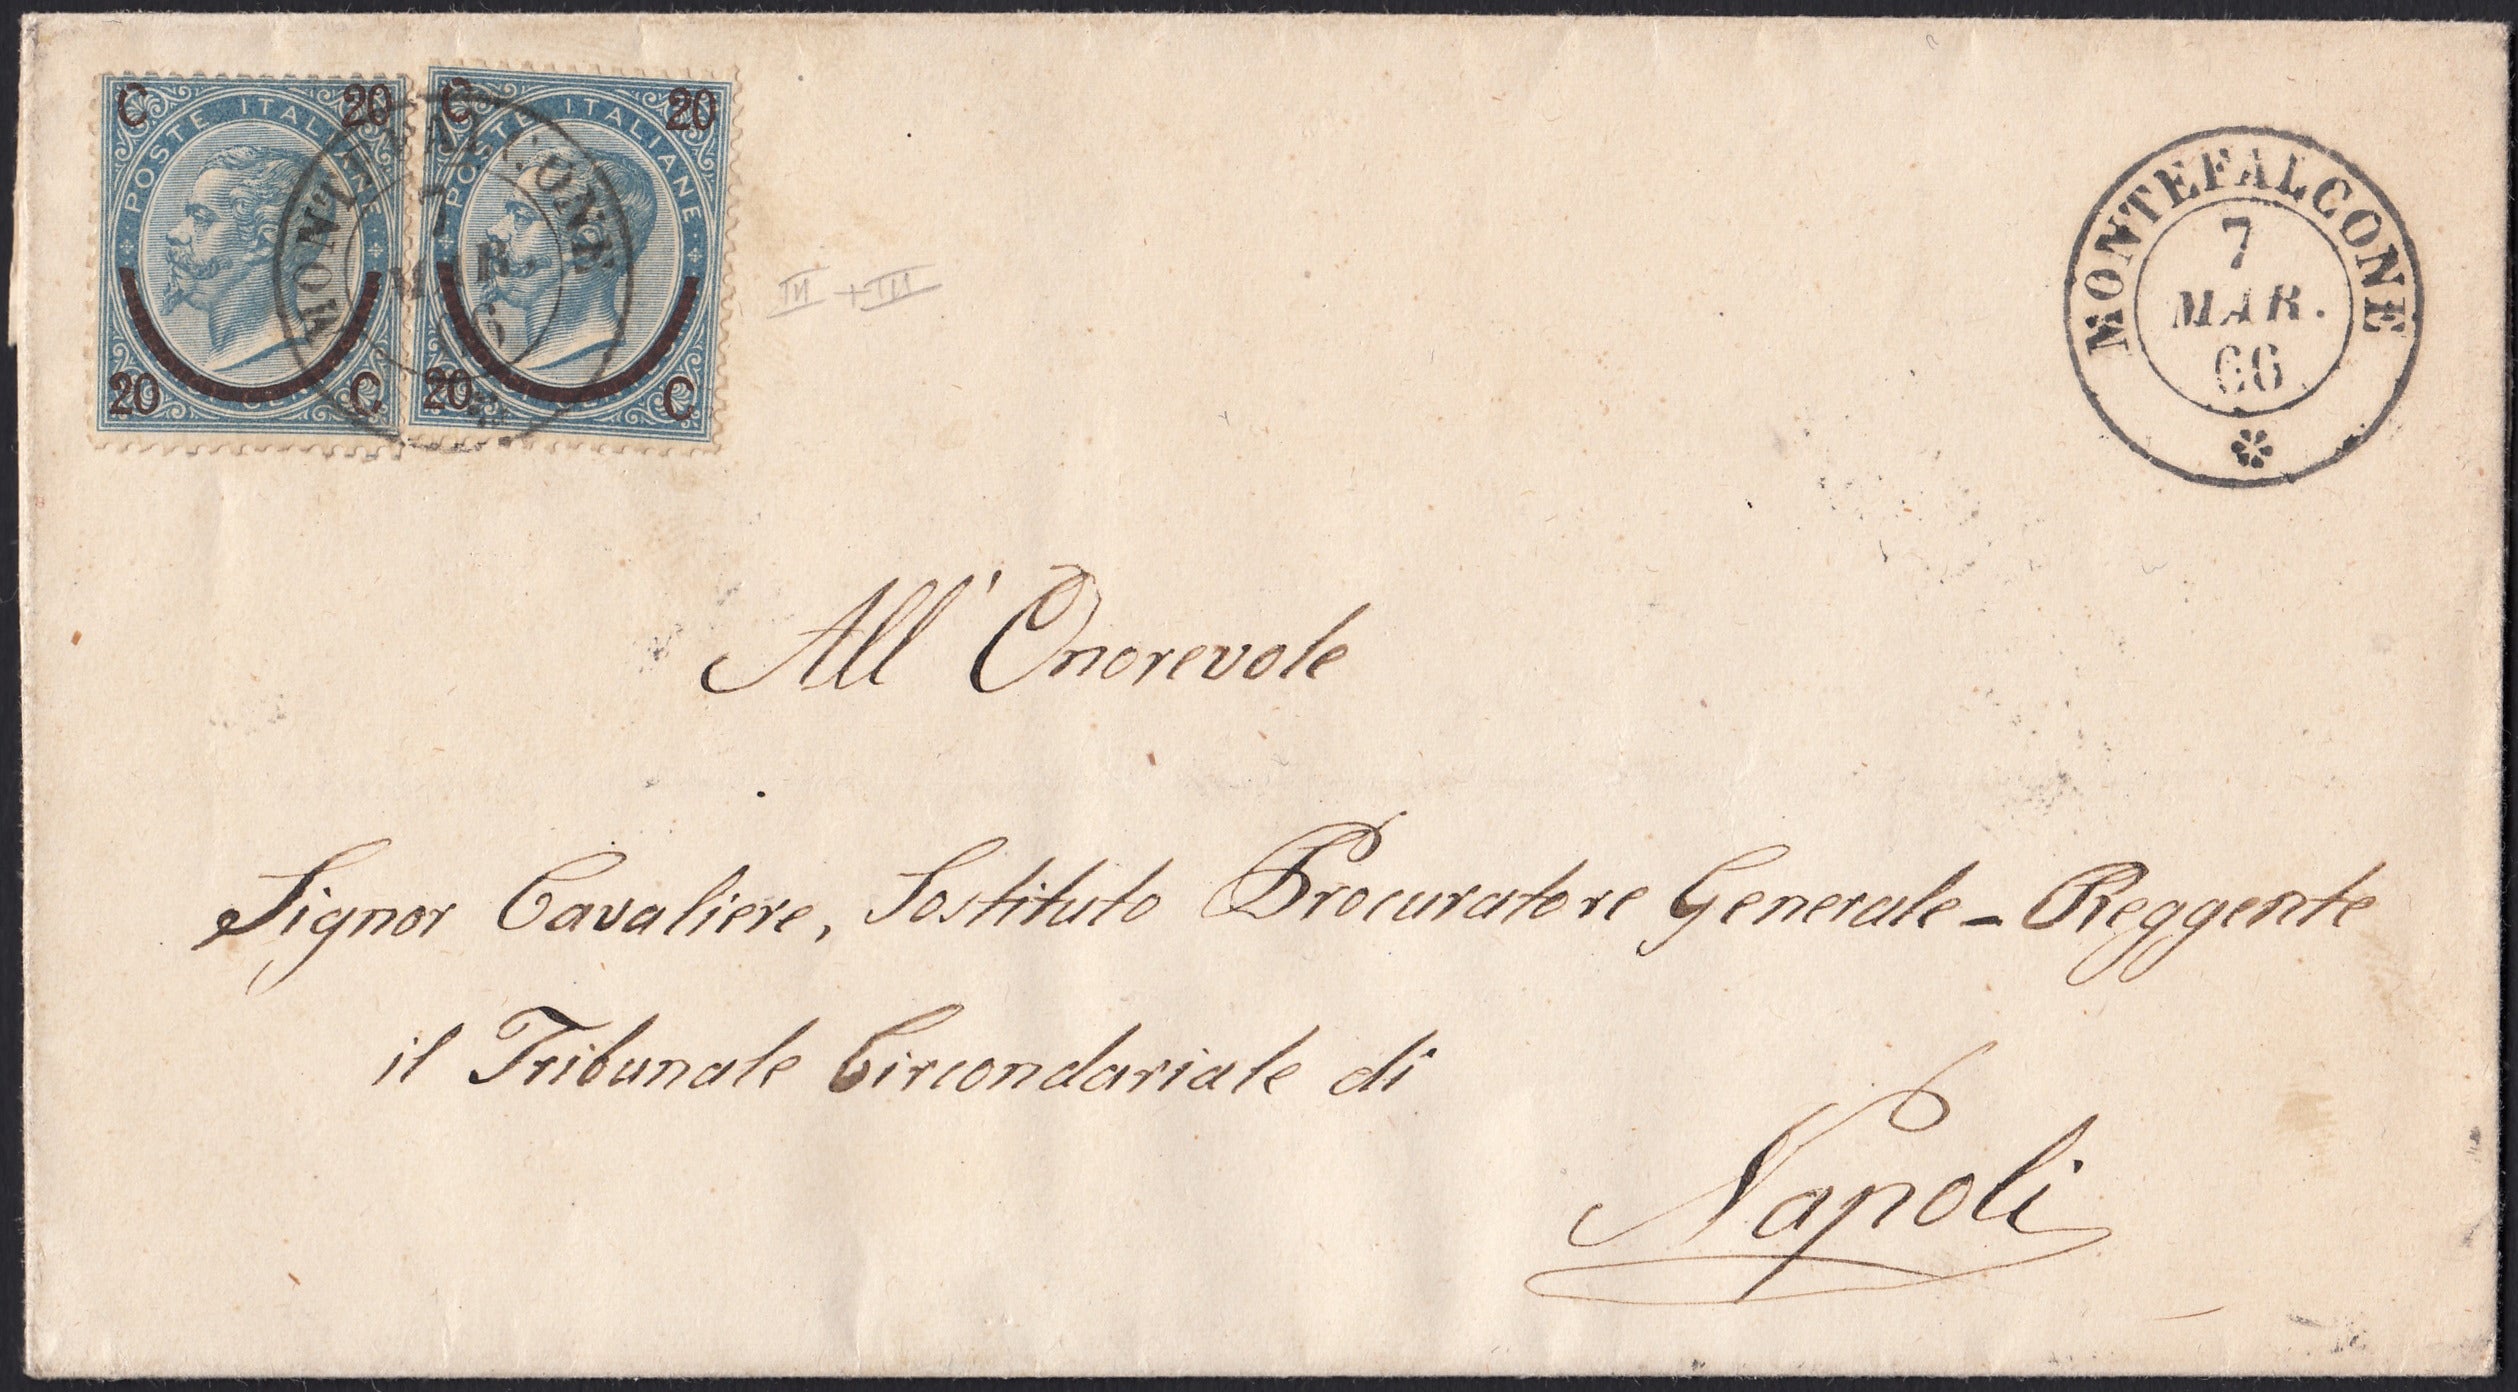 C 20
POSTE ITALIANE
20 C
C 20
POSTE ITALIANE
20 C
MONTEFALCONE
7
MAR.
66
III + III
MONTEFALCONE
7
MAR.
66
All' Onorevole
Signor Cavaliere, Sostituto Procuratore Generale - Reggente
il Tribunale Circondariale di
Napoli